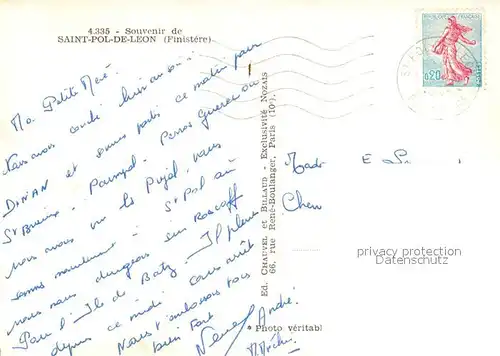 4.335 - Souvenir de
SAINT-POL-DE-LEON (Finistère)
REPUBLIQUE FRANÇAISE
0,20
Ma Petite Mémé.
Nous avons couché hier au soir à
DINAN et sommes partis ce matin pour
St Brieuc - Paimpol - Perros Guirec ou
nous avons vu les Pujol, nous
sommes maintenant à St Pol où
nous nous dirigeons sur Roscoff
Pour l'Ile de Batz Il pleut
depuis ce midi. sans arrêt
Nous t'embrassons tous
bien Fort
André.
Ed. CHAUVEL et BILLAUD - Exclusivité NOZAIS
66, rue René-Boulanger, Paris (10e).
Madr E
Chem
privacy protection
Datenschutz
* Photo véritabl